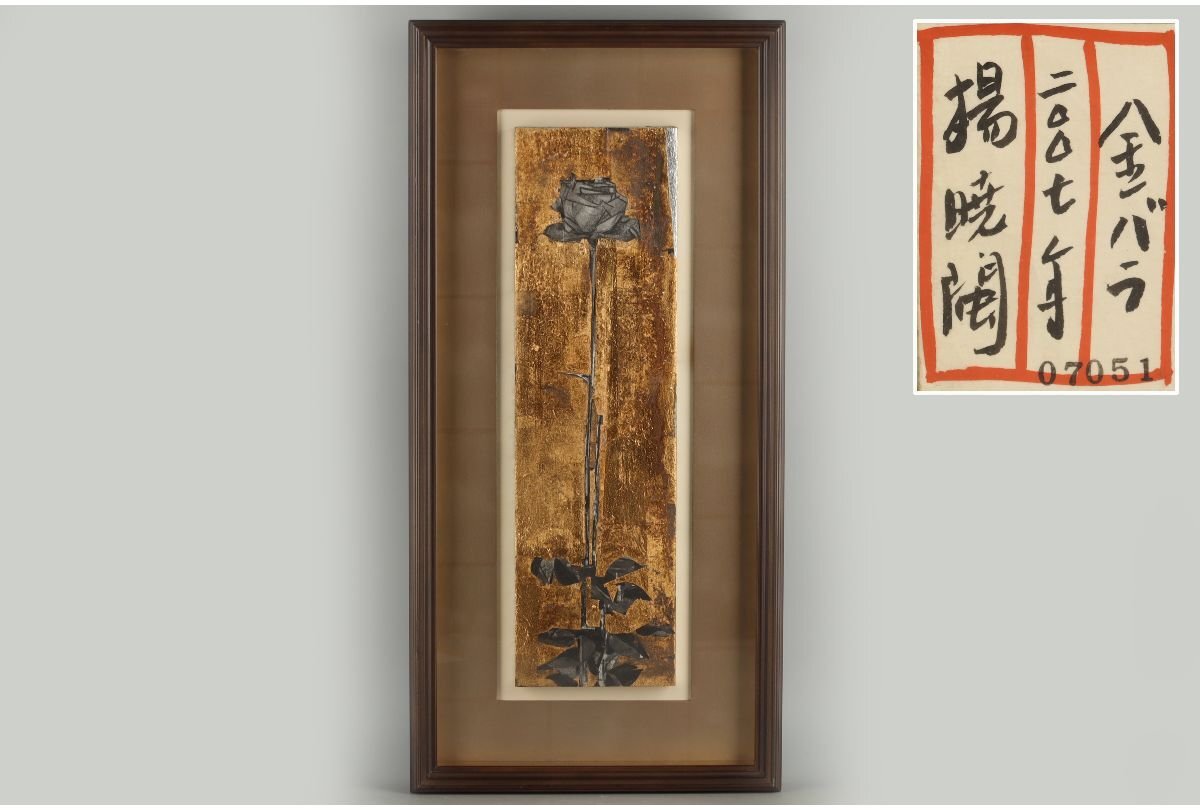 金バラ
二〇〇七年
楊暁閩
07051